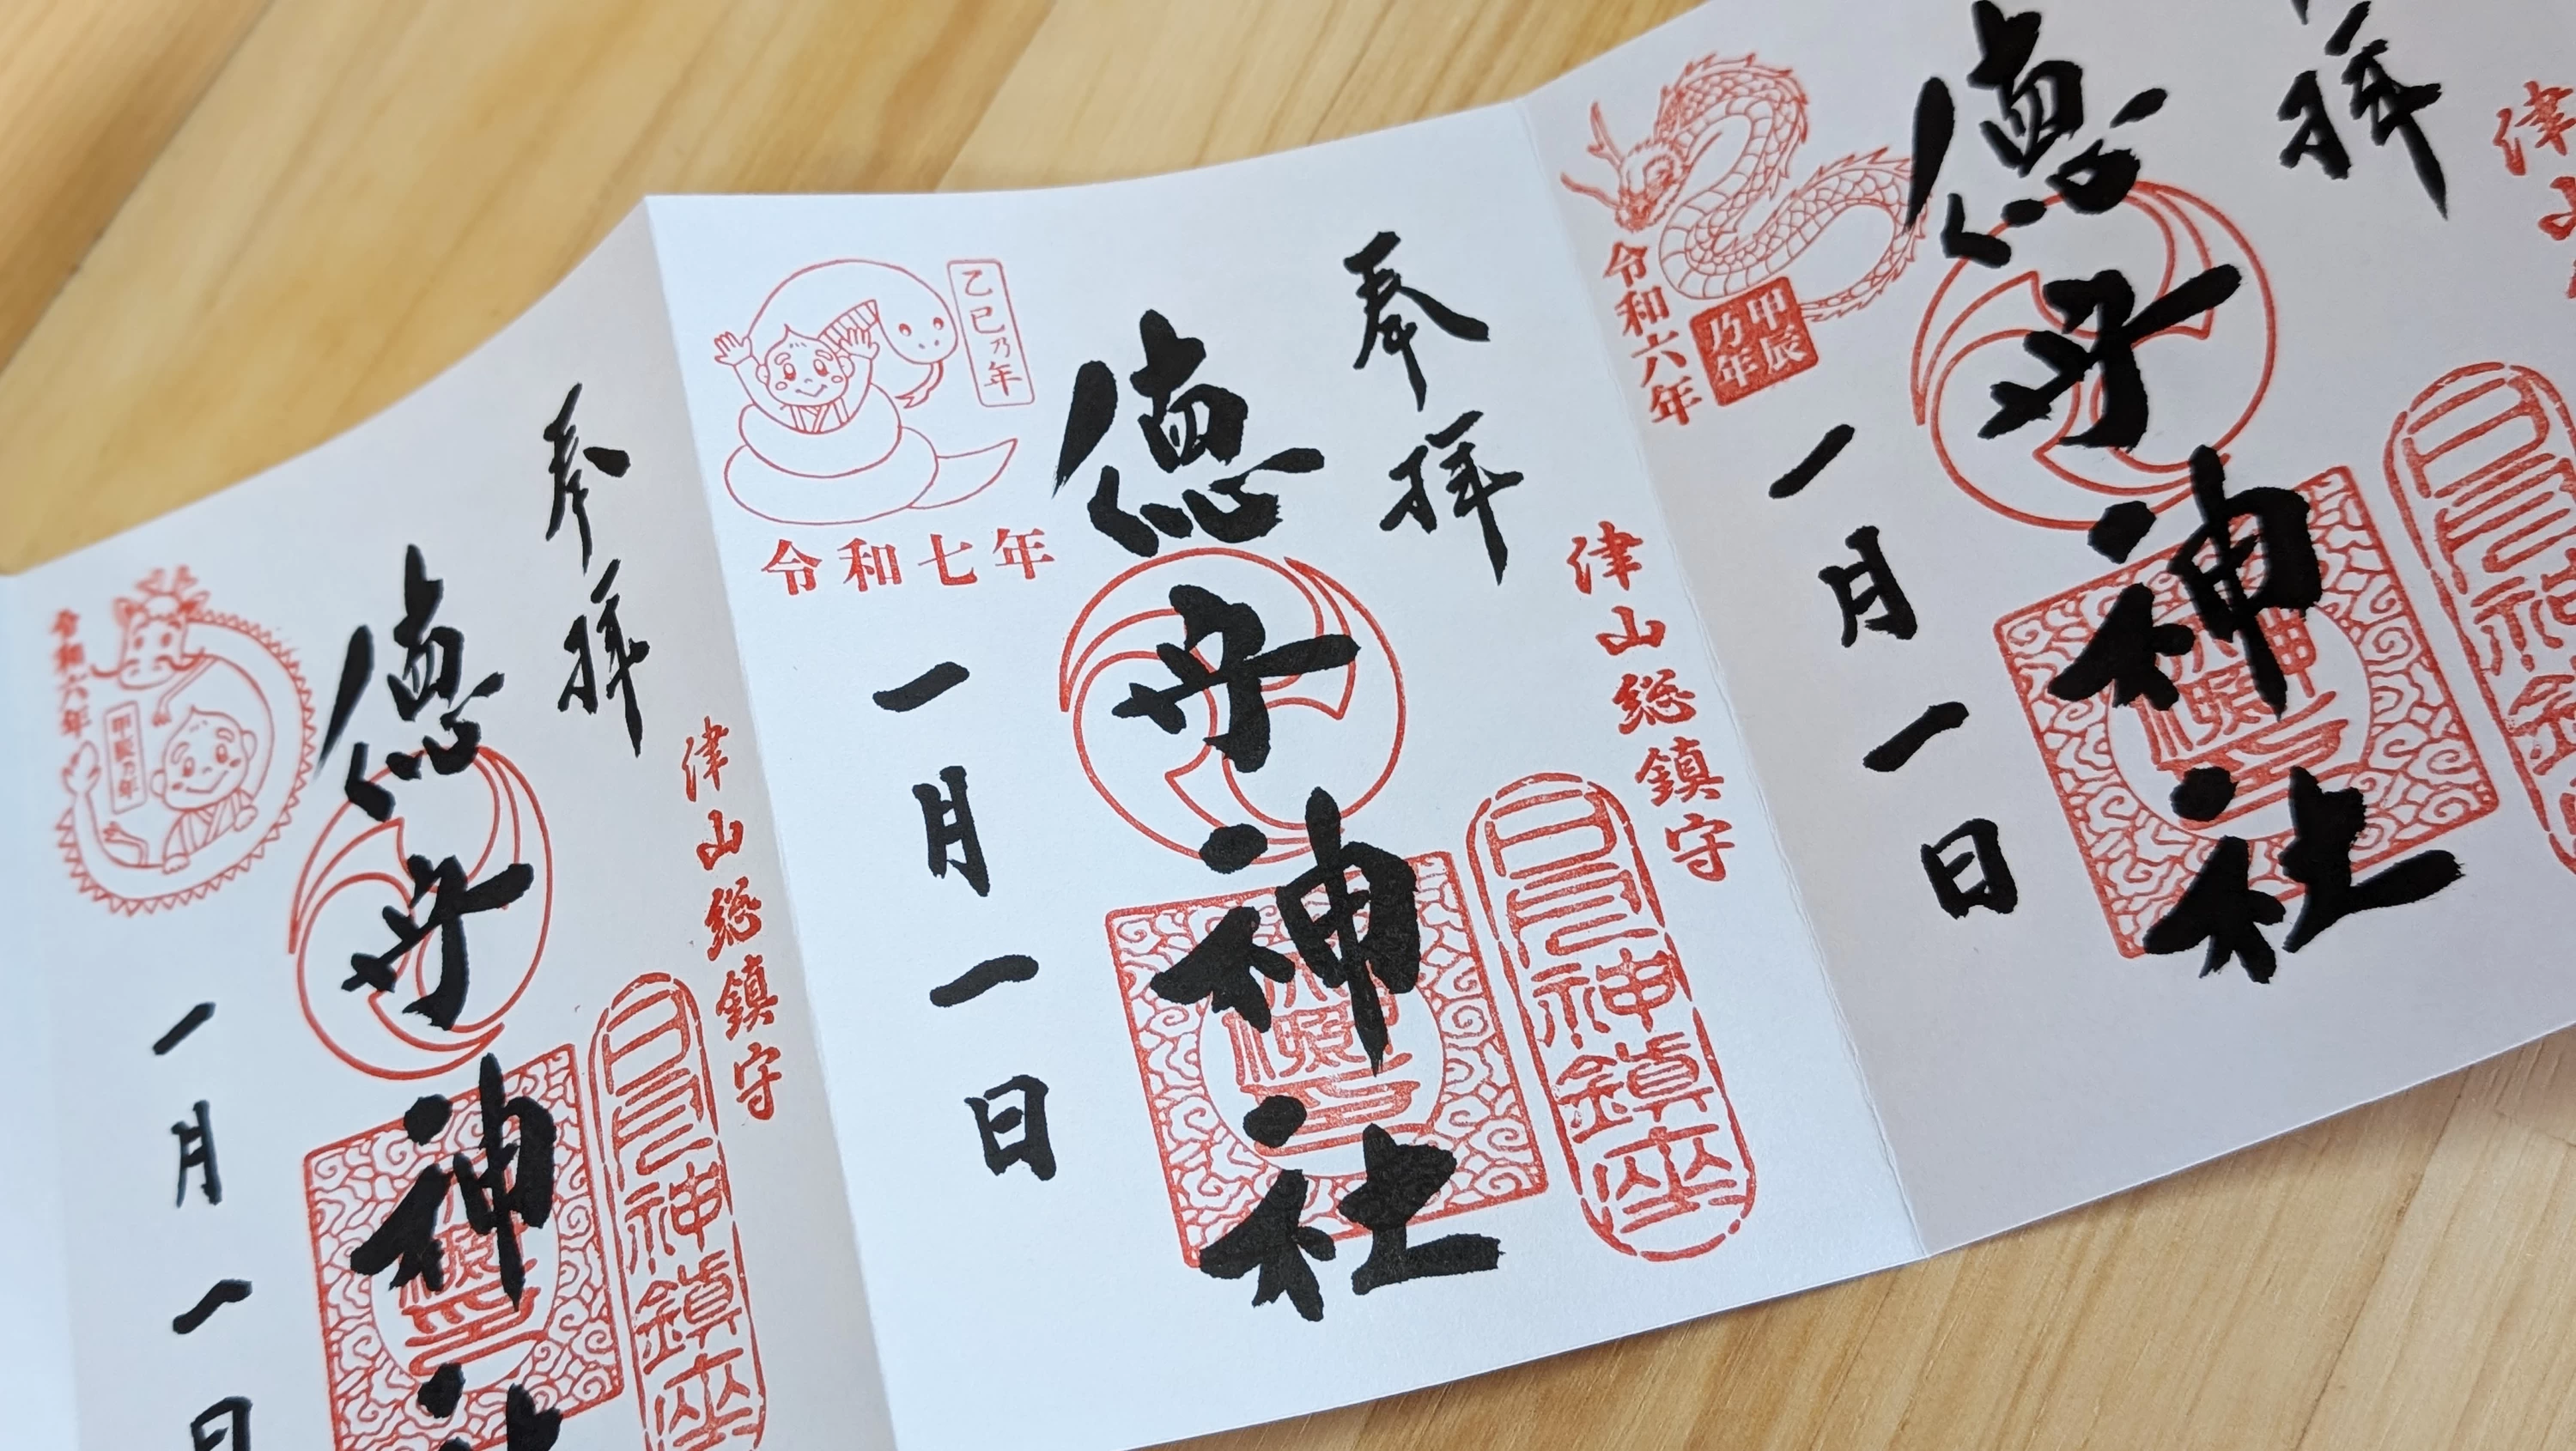 拝
津山
徳守神社
令和六年
甲辰乃年
一月一日
奉拝
津山総鎮守
神鎮座
徳守神社
乙巳乃年
令和七年
一月一日
奉拝
津山総鎮守
神鎮座
徳守神社
令和六年
甲辰乃年
一月一日